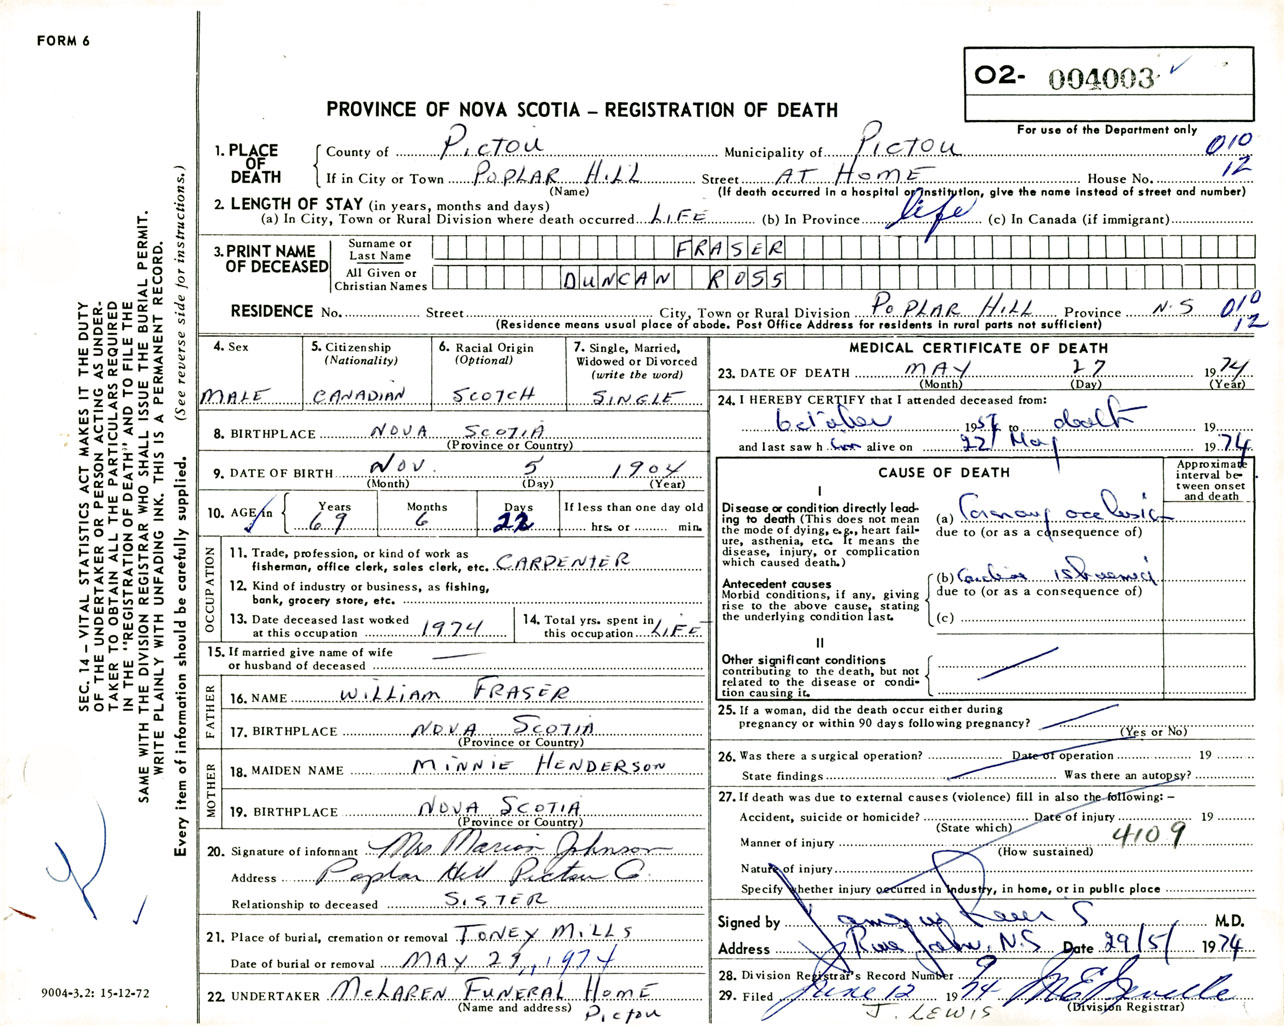 FORM 6
O2- 004003
PROVINCE OF NOVA SCOTIA – REGISTRATION OF DEATH
For use of the Department only
1. PLACE OF DEATH
County of PICTOU Municipality of PICTOU 010
If in City or Town POPLAR HILL Street AT HOME House No. 12
(Name) (If death occurred in a hospital or institution, give the name instead of street and number)
2. LENGTH OF STAY (in years, months and days)
(a) In City, Town or Rural Division where death occurred LIFE (b) In Province life (c) In Canada (if immigrant)
3. PRINT NAME OF DECEASED
Surname or Last Name FRASER
All Given or Christian Names DUNCAN ROSS
RESIDENCE No. Street City, Town or Rural Division POPLAR HILL Province N.S 010 12
(Residence means usual place of abode. Post Office Address for residents in rural parts not sufficient)
4. Sex
MALE
5. Citizenship (Nationality)
CANADIAN
6. Racial Origin (Optional)
SCOTCH
7. Single, Married, Widowed or Divorced (write the word)
SINGLE
8. BIRTHPLACE NOVA SCOTIA
(Province or Country)
9. DATE OF BIRTH NOV. 5 1904
(Month) (Day) (Year)
10. AGE in Years 69 Months 6 Days 22 If less than one day old hrs. or min.
OCCUPATION
11. Trade, profession, or kind of work as
fisherman, office clerk, sales clerk, etc. CARPENTER
12. Kind of industry or business, as fishing,
bank, grocery store, etc.
13. Date deceased last worked
at this occupation 1974
14. Total yrs. spent in
this occupation LIFE
15. If married give name of wife
or husband of deceased —
FATHER
16. NAME WILLIAM FRASER
17. BIRTHPLACE NOVA SCOTIA
(Province or Country)
MOTHER
18. MAIDEN NAME MINNIE HENDERSON
19. BIRTHPLACE NOVA SCOTIA
(Province or Country)
20. Signature of informant Mrs Marion Johnson
Address Poplar Hill Pictou Co.
Relationship to deceased SISTER
21. Place of burial, cremation or removal TONEY MILLS
Date of burial or removal MAY 29, 1974
22. UNDERTAKER McLAREN FUNERAL HOME
(Name and address) Pictou
MEDICAL CERTIFICATE OF DEATH
23. DATE OF DEATH MAY 27 1974
(Month) (Day) (Year)
24. I HEREBY CERTIFY that I attended deceased from:
October 1957 to death 19
and last saw h im alive on 22 May 1974
CAUSE OF DEATH
Approximate interval between onset and death
I
Disease or condition directly leading to death (This does not mean
the mode of dying, e.g., heart failure, asthenia, etc. It means the
disease, injury, or complication
which caused death.)
(a) Coronary occlusion
due to (or as a consequence of)
Antecedent causes
Morbid conditions, if any, giving
rise to the above cause, stating
the underlying condition last.
(b) Cardiac ischaemia
due to (or as a consequence of)
(c)
II
Other significant conditions
contributing to the death, but not
related to the disease or condition causing it.
25. If a woman, did the death occur either during
pregnancy or within 90 days following pregnancy?
(Yes or No)
26. Was there a surgical operation? Date of operation 19
State findings Was there an autopsy?
27. If death was due to external causes (violence) fill in also the following: –
Accident, suicide or homicide? Date of injury 19
(State which) 4109
Manner of injury
(How sustained)
Nature of injury
Specify whether injury occurred in Industry, in home, or in public place
Signed by M.D.
Address River John, N.S Date 29/5/ 1974
28. Division Registrar's Record Number 9
29. Filed June 12 1974
(Division Registrar)
J. LEWIS
SEC. 14 – VITAL STATISTICS ACT MAKES IT THE DUTY
OF THE UNDERTAKER OR PERSON ACTING AS UNDERTAKER TO OBTAIN ALL THE PARTICULARS REQUIRED
IN THE "REGISTRATION OF DEATH" AND TO FILE THE
SAME WITH THE DIVISION REGISTRAR WHO SHALL ISSUE THE BURIAL PERMIT.
WRITE PLAINLY WITH UNFADING INK. THIS IS A PERMANENT RECORD.
Every item of information should be carefully supplied. (See reverse side for instructions.)
9004-3.2: 15-12-72